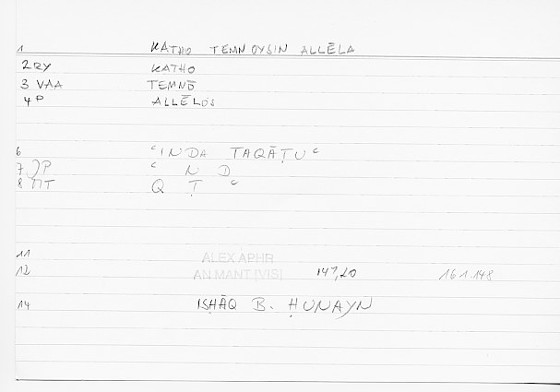 1 KATHO TEMNOYSIN ALLĒLA
2 RY KATHO
3 VAA TEMNŌ
4 P ALLĒLŌN
6 ʿINDA TAQĀṬUʿ
7 JP ʿ N D
8 ΠT Q Ṭ ʿ
11 ALEX APHR
12 AN MANT [VIS] 147,20 161.148
14 ISḤĀQ B. ḤUNAYN